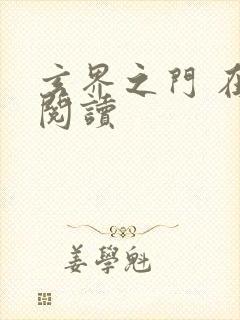 玄界之門 在
閱讀
姜學魁